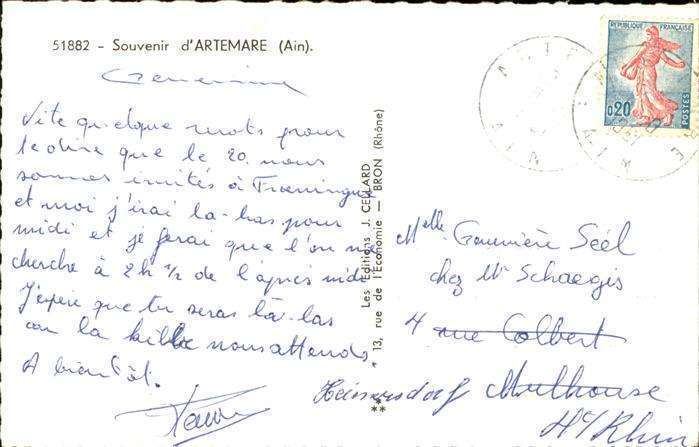 51882 - Souvenir d'ARTEMARE (Ain).
Vite quelque mots pour
te dire que le 20 nous
sommes invités à
et moi j'irai là-bas pour
midi et je ferai que l'on me
cherche à 2h 1/2 de l'après midi
J'espère que tu seras là-bas
car la nous attends
A bientôt.
Les Editions J. CELLARD
13, rue de l'Economie — BRON (Rhône)
REPUBLIQUE FRANÇAISE
0,20
POSTES
AIN
Melle Geneviève Séel
chez Mr Schaegis
4 rue Colbert
Heimersdorf Mulhouse
Ht/Rhin